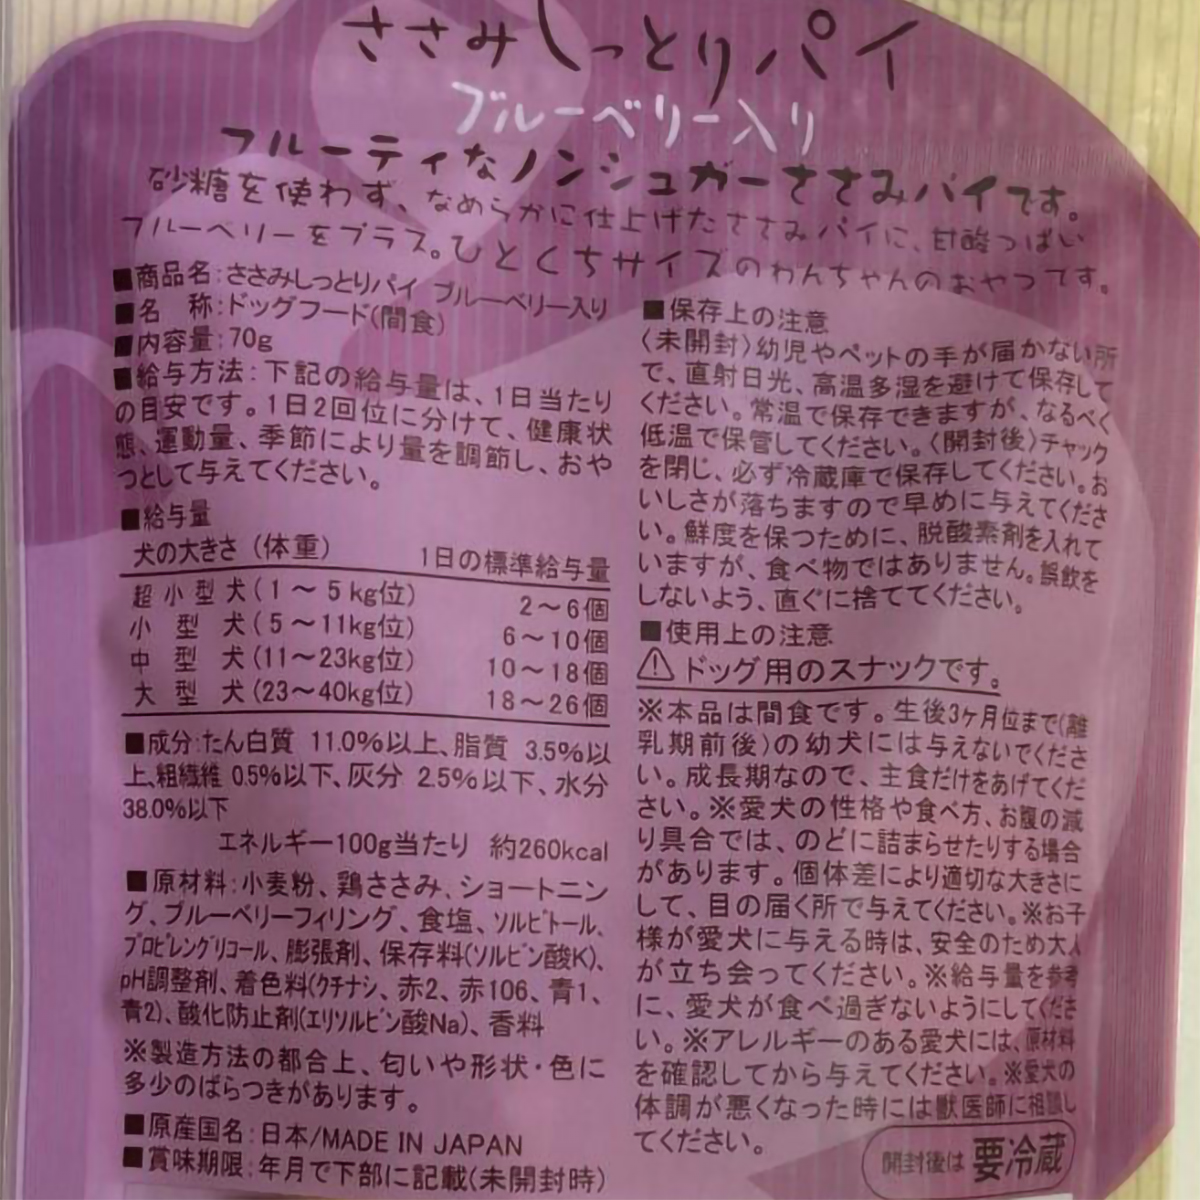 ささみしっとりパイ
ブルーベリー入り
フルーティなノンシュガーささみパイです。
砂糖を使わず、なめらかに仕上げたささみパイに、甘酸っぱい
ブルーベリーをプラス。ひとくちサイズのわんちゃんのおやつです。
■商品名:ささみしっとりパイ ブルーベリー入り
■名 称:ドッグフード(間食)
■内容量:70g
■給与方法:下記の給与量は、1日当たり
の目安です。1日2回位に分けて、健康状
態、運動量、季節により量を調節し、おや
つとして与えてください。
■給与量
犬の大きさ(体重) 1日の標準給与量
超小型犬(1〜5kg位) 2〜6個
小型犬(5〜11kg位) 6〜10個
中型犬(11〜23kg位) 10〜18個
大型犬(23〜40kg位) 18〜26個
■成分:たん白質 11.0%以上、脂質 3.5%以
上、粗繊維 0.5%以下、灰分 2.5%以下、水分
38.0%以下
エネルギー100g当たり 約260kcal
■原材料:小麦粉、鶏ささみ、ショートニン
グ、ブルーベリーフィリング、食塩、ソルビトール、
プロピレングリコール、膨張剤、保存料(ソルビン酸K)、
pH調整剤、着色料(クチナシ、赤2、赤106、青1、
青2)、酸化防止剤(エリソルビン酸Na)、香料
※製造方法の都合上、匂いや形状・色に
多少のばらつきがあります。
■原産国名:日本/MADE IN JAPAN
■賞味期限:年月で下部に記載(未開封時)
■保存上の注意
〈未開封〉幼児やペットの手が届かない所
で、直射日光、高温多湿を避けて保存して
ください。常温で保存できますが、なるべく
低温で保管してください。〈開封後〉チャック
を閉じ、必ず冷蔵庫で保存してください。お
いしさが落ちますので早めに与えてくださ
い。鮮度を保つために、脱酸素剤を入れて
いますが、食べ物ではありません。誤飲を
しないよう、直ぐに捨ててください。
■使用上の注意
⚠ドッグ用のスナックです。
※本品は間食です。生後3ヶ月位まで(離
乳期前後)の幼犬には与えないでくださ
い。成長期なので、主食だけをあげてくだ
さい。※愛犬の性格や食べ方、お腹の減
り具合では、のどに詰まらせたりする場合
があります。個体差により適切な大きさに
して、目の届く所で与えてください。※お子
様が愛犬に与える時は、安全のため大人
が立ち会ってください。※給与量を参考
に、愛犬が食べ過ぎないようにしてくださ
い。※アレルギーのある愛犬には、原材料
を確認してから与えてください。※愛犬の
体調が悪くなった時には獣医師に相談し
てください。
開封後は 要冷蔵